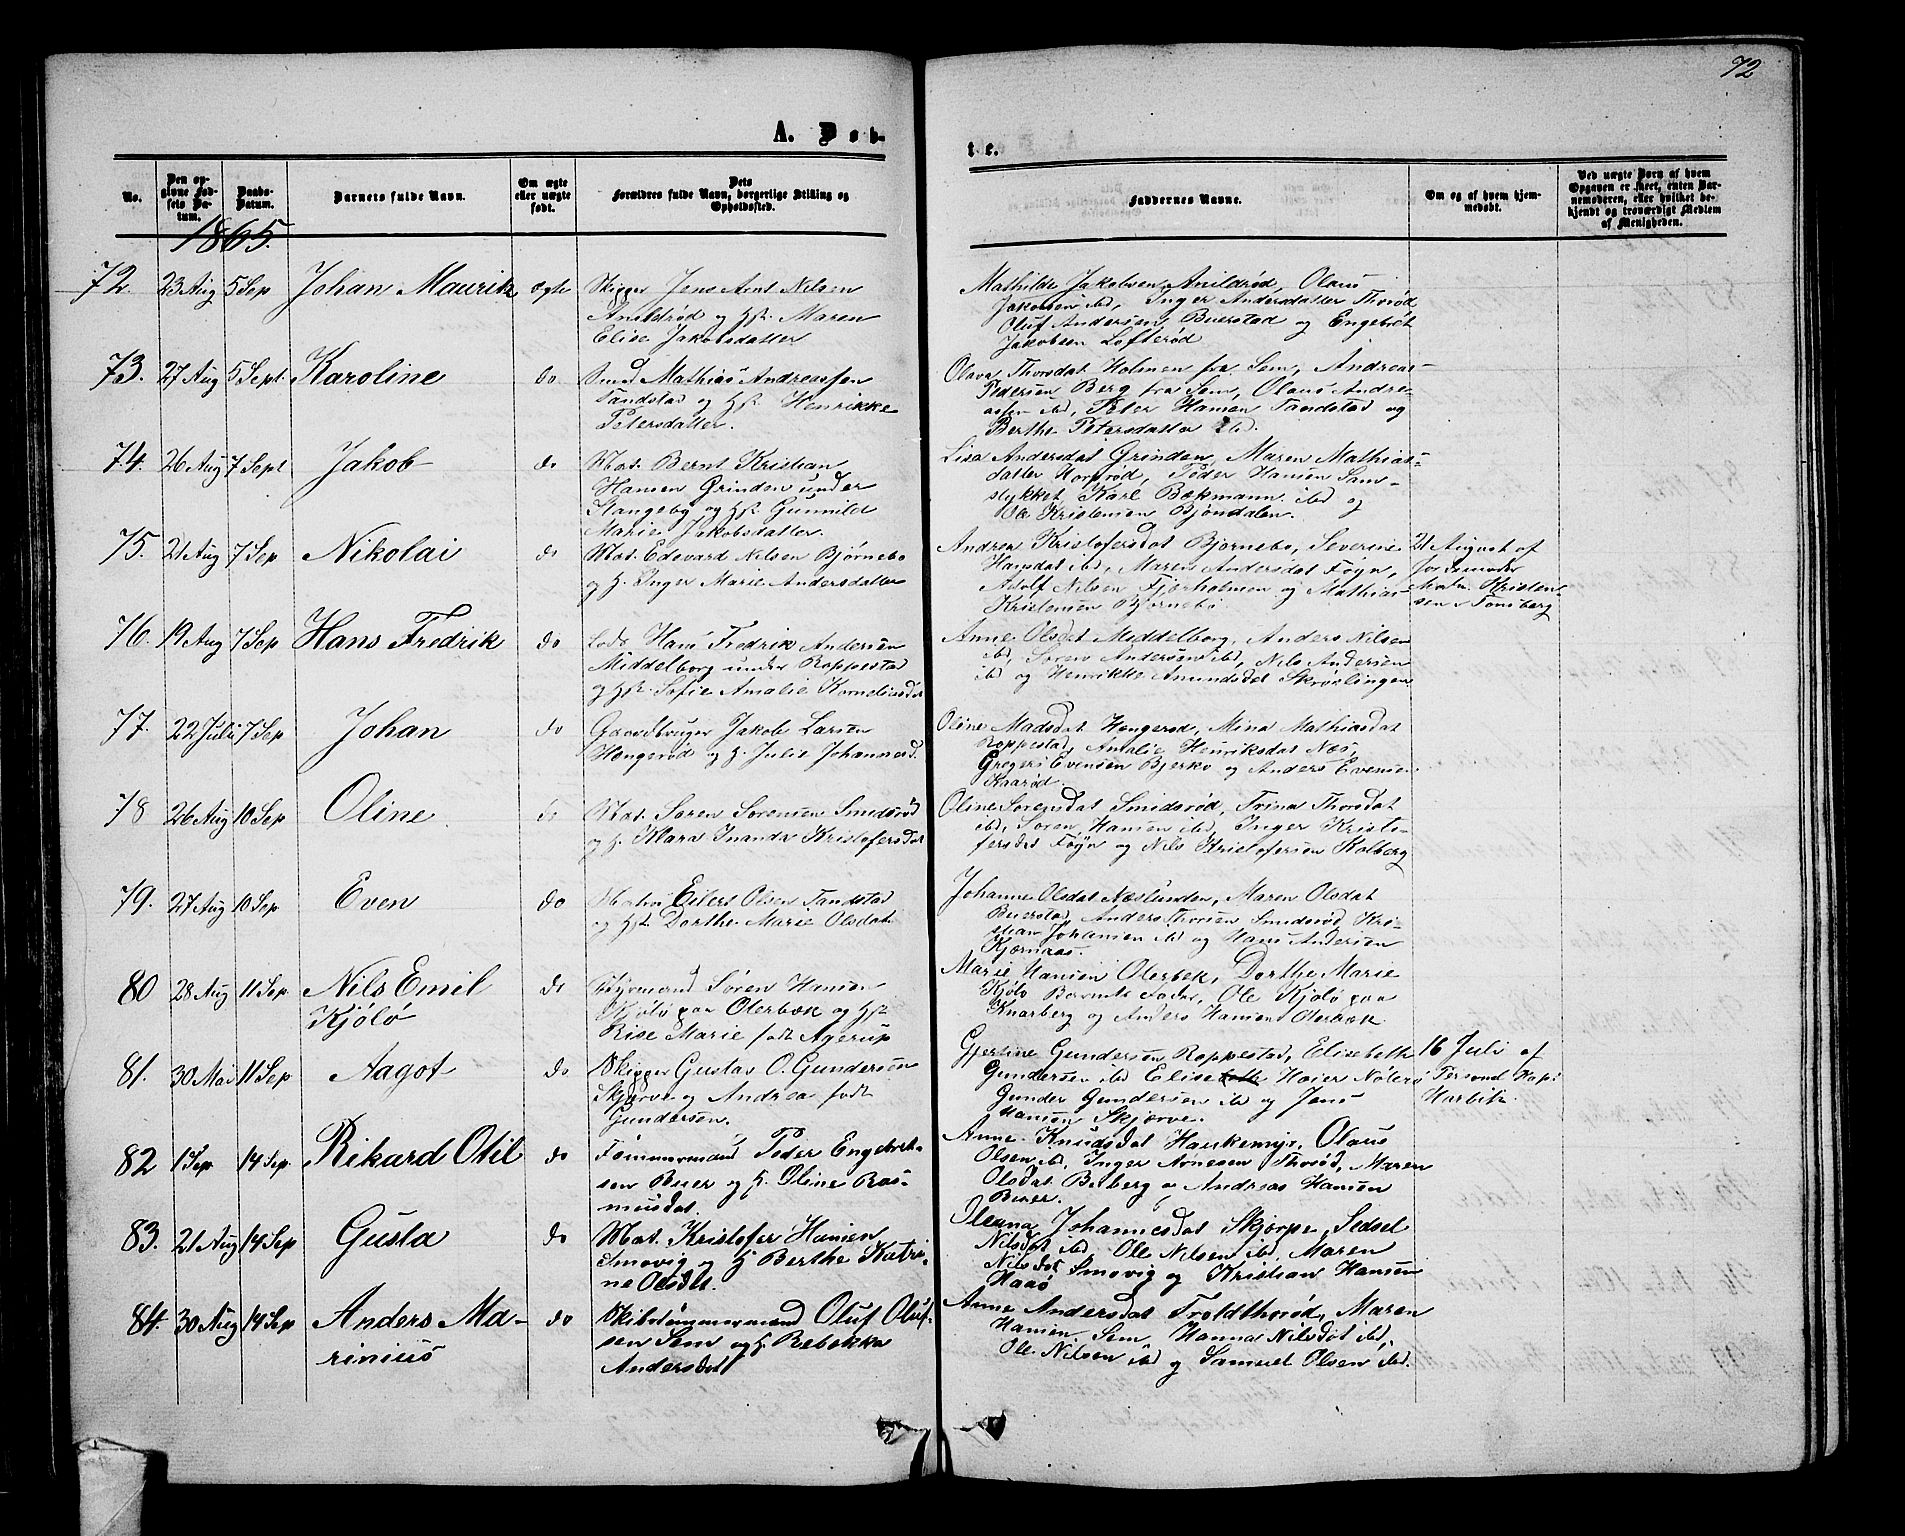 72
A. Døb-
te.
No.
Den op-
givne Fød-
sels Da-
tum.
Daabs-
Datum.
Barnets fulde Navn.
Om ægte
eller uægte
født.
Dets
Forældres fulde Navn, borgerlige Stilling og
Opholdssted.
Faddernes Navne.
Om og af hvem hjem-
medøbt.
Ved uægte Børn af hvem
Opgaven er skeet, enten Bar-
nemoderen, eller hvilket be-
kjendt og troværdigt Medlem
af Menigheden.
1865.
72. 23 Aug 5 Sep Johan Maurik ægte
Skipper Jens Arnt Nilsen
Anildrød og Hst. Maren
Elise Jakobsdatter
Mathilde Jakobsen Anildrød, Olaus
Jakobsen ibd, Inger Andersdatter Thorød
Oluf Andersen Buerstad og Engebret
Jakobsen Lofterød
73. 27 Aug 5 Sept. Karoline do.
Smed Mathias Andreassen
Tandstad og Hst. Henrikke
Petersdatter.
Olava Thorsdat Holmen fra Sem, Andreas
Pedersen Berg fra Sem, Olaus Andre-
assen ibd, Peter Hansen Tandstad og
Berthe Petersdatter ibd.
74. 26 Aug 7 Sept Jakob do
Mat. Bernt Kristian
Hansen Grinden under
Stangeby og Hst. Gunnild
Marie Jakobsdatter.
Lisa Andersdat Grinden, Maren Mathias-
datter Horprød, Peder Hansen Sam-
stykket Karl Bækmann ibd og
Kristensen Bjøndalen.
75. 21 Aug 7 Sep Nikolai do
Mat. Edevard Nilsen Bjørnebo
og H. Inger Marie Andersdatter
Andrea Kristofersdat Bjørnebo, Severine
Hansdat ibd, Maren Andersdat Føyn,
Adolf Nilsen Fjærholmen og Mathias
Kristensen Bjørnebo
21 August af
Jordemoder
Malm. Kristen-
sen Tønsberg
76. 19 Aug 7 Sep Hans Fredrik do
Lods Hans Fredrik Andersen
Middelborg under Roppestad
og Hst. Sofie Amalie Kornelius
Anne Olsdat Middelborg, Anders Nilsen
ibd, Søren Andersen ibd, Nils Andersen
ibd og Henrikke Amundsdat Skrøslingen
77. 22 Juli 7 Sep Johan do
Gaardbruger Jakob Larsen
Hengerød og H. Julie Johannesd.
Oline Madsdat Hengerød, Mina Mathiasdat
Roppestad, Amalie Henriksdat Næs,
Gregers Evensen Bjerkø og Anders Evensen
Kaarød.
78 26 Aug 10 Sep Oline do
Mat. Søren Sørensen Smidsrød
og H. Klara Inanda Kristofersdat
Oline Sørensdat Smidsrød, Trina Thorsdat
ibd, Søren Hansen ibd, Inger Kristo-
fersdat Føyn og Nils Kristofersen Kolberg
79. 27 Aug 10 Sep Even do
Matro Eilers Olsen Tandstad
og Hst. Dorthe Marie Olsdat
Johanne Olsdat Næslunden, Maren Olsdat
Buerstad, Anders Thorsen Smidsrød, Kri-
stian Johansen ibd og Hans Andersen
Kjærnaas.
80 28 Aug 11 Sep. Nils Emil
Kjølø do
Styrmand Søren Hansen
Kjølø paa Oterbæk og Hst
Rise Marie født Agerup
Marie Hansen Oterbæk, Dorthe Marie
Kjølø Barnets Fader, Ole Kjølø paa
Knarberg og Anders Hansen Oterbæk
81. 30 Mai 11 Sep Aagot do
Skipper Gustav O. Gundersen
Skjærve og Andrea født
Gundersen.
Gjertine Gundersen Roppestad, Elisabeth
Gundersen ibd Elise Høier Nøterø
Gunder Gundersen ibd og Jens
Hansen Skjærve.
16 Juli af
Personel Kap:
Harbitz.
82 1 Sep 14 Sep. Rikard Otil do
Tømmermand Peder Engebret-
sen Buer og H. Oline Ras-
musdat.
Anne Knudsdat Haukemyr, Olaus
Olsen ibd, Inger Arnesen Thorød, Maren
Olsdat Berberg og Andreas Hansen
Buer.
83. 21 Aug 14 Sep Gusta do
Mat. Kristofer Hansen
Smovig og H Berthe Katri-
ne Olsdat.
Oleana Johannesdat Skjørpe, Sedsel
Nilsdat ibd, Ole Nilsen ibd, Maren
Nilsdat Smovig og Kristian Hansen
Haaø
84. 30 Aug 14 Sep Anders Ma-
rinius do
Skibstømmermand Oluf Oluf-
sen Sem og H. Rebekka
Andersdat
Anne Andersdat Troldthorød, Maren
Hansen Sem, Hanna Nilsdat ibd,
Ole Nilsen ibd og Samuel Olsen ibd.